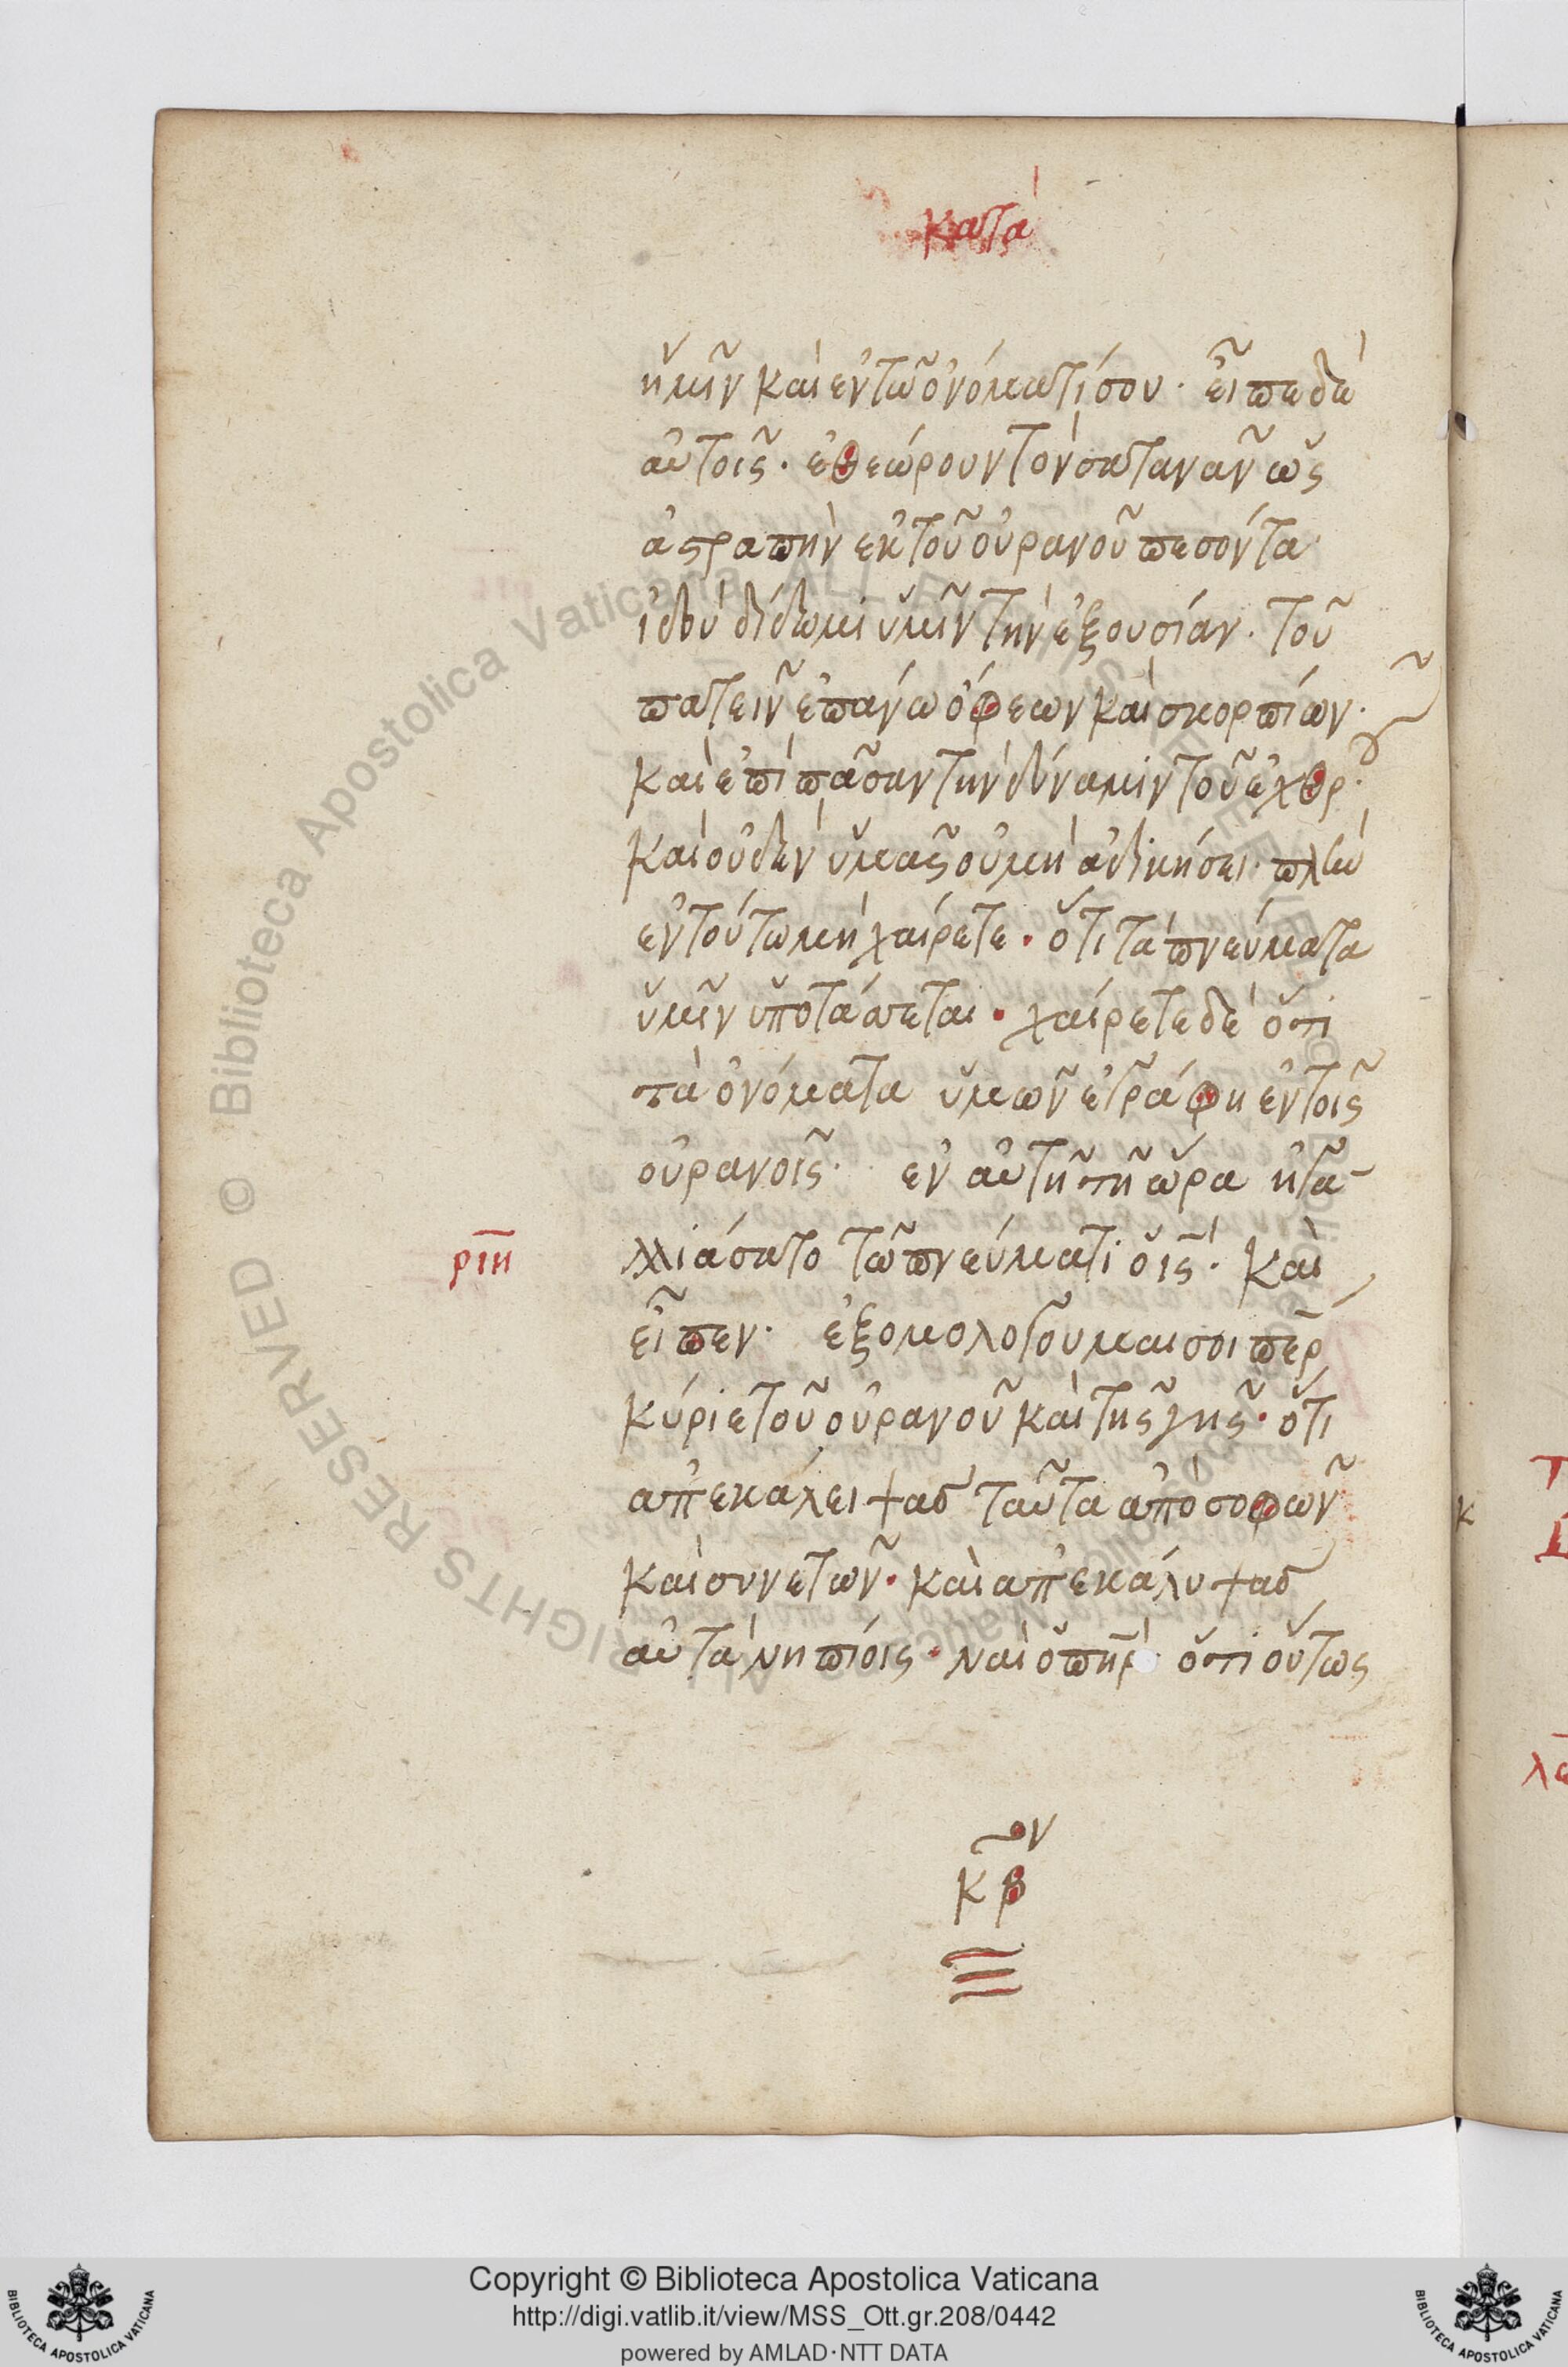 κατὰ
ἡμῖν καὶ ἐν τῶ ὀνόματί σου· εἶπε δὲ
αὐτοῖς· ἐθεώρουν τὸν σατανᾶν ὡς
ἀστραπὴν ἐκ τοῦ οὐρανοῦ πεσόντα·
ἰδοὺ δίδωμι ὑμῖν τὴν ἐξουσίαν· τοῦ
πατεῖν ἐπάνω ὄφεων καὶ σκορπίων·
καὶ ἐπὶ πᾶσαν τὴν δύναμιν τοῦ ἐχθροῦ·
καὶ οὐδὲν ὑμᾶς οὐ μὴ ἀδικήσει· πλὴν
ἐν τούτω μὴ χαίρετε· ὅτι τὰ πνεύματα
ὑμῖν ὑποτάσσεται· χαίρετε δὲ ὅτι
τὰ ὀνόματα ὑμῶν ἐγράφη ἐν τοῖς
οὐρανοῖς· ἐν αὐτῆ τῆ ὥρα ἠγα
ριη λλιάσατο τῶ πνεύματι ὁ ις· καὶ
εἶπεν· ἐξομολογοῦμαι σοι περ
κύριε τοῦ οὐρανοῦ καὶ τῆς γῆς· ὅτι
ἀπεκάλειψας ταῦτα ἀπὸ σοφῶν
καὶ συνετῶν· καὶ ἀπεκάλυψας
αὐτὰ νηπίοις· ναὶ ὁ πηρ ὅτι οὕτως
ον
κβ
Copyright © Biblioteca Apostolica Vaticana
http://digi.vatlib.it/view/MSS_Ott.gr.208/0442
powered by AMLAD·NTT DATA
BIBLIOTECA APOSTOLICA VATICANA
BIBLIOTECA APOSTOLICA VATICANA
© Biblioteca Apostolica Vaticana ALL RIGHTS RESERVED